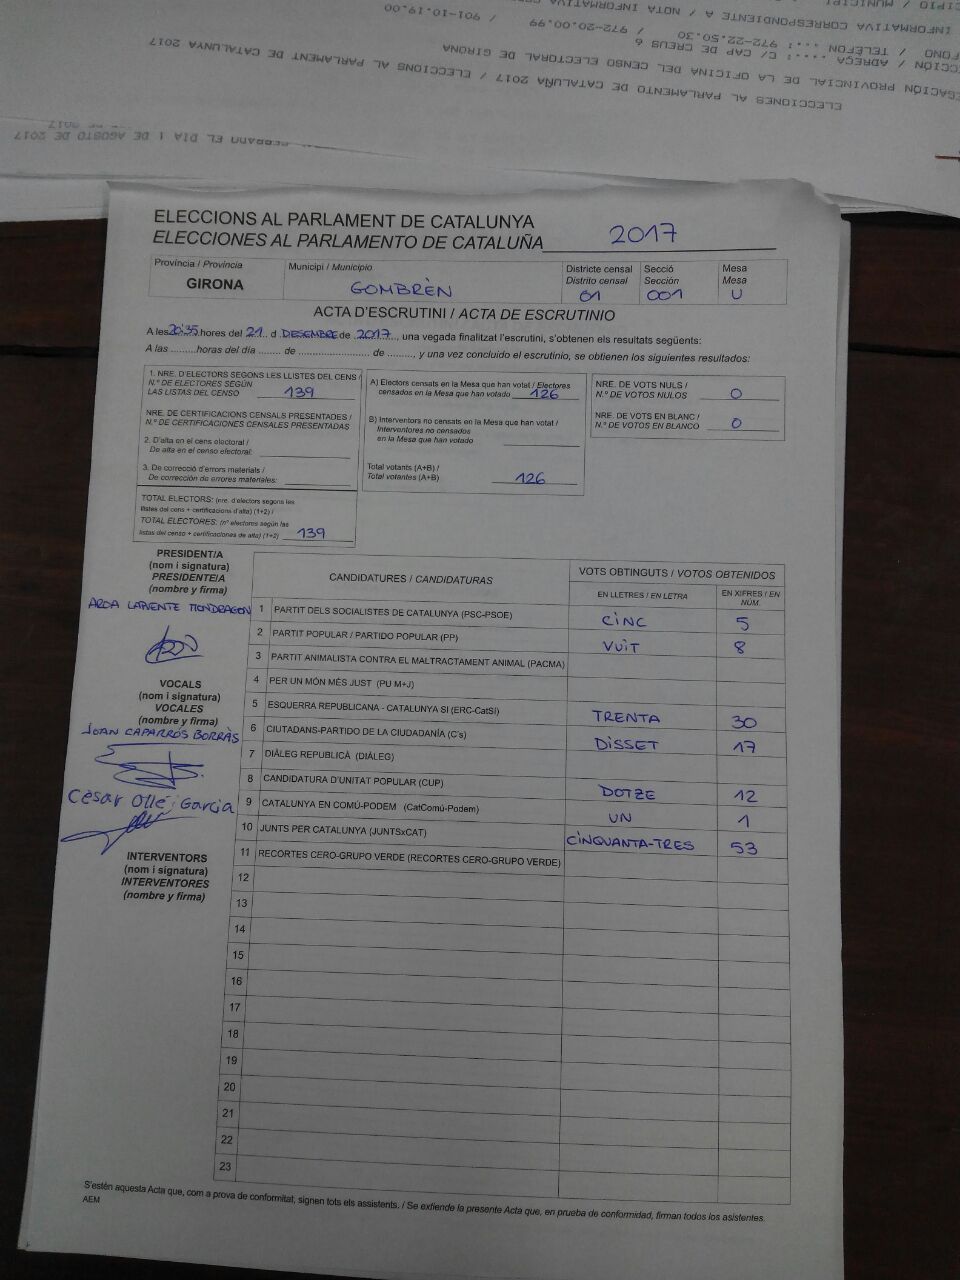 ELECCIONES AL PARLAMENTO DE CATALUÑA 2017 / ELECCIONS AL PARLAMENT DE CATALUNYA 2017
PROVINCIAL DE LA OFICINA DEL CENSO ELECTORAL DE GIRONA
/ ADREÇA ....: C/ CAP DE CREUS 6
/ TELEFON ...: 972-22.50.30 / 972-20.00.99 / 901-10.10.00
INFORMATIVA CORRESPONDIENTE A / NOTA INFORMATIVA
CERRADO EL DIA 1 DE AGOSTO DE 2017
ELECCIONS AL PARLAMENT DE CATALUNYA
ELECCIONES AL PARLAMENTO DE CATALUÑA 2017
Província / Provincia
GIRONA
Municipi / Municipio
GOMBRÈN
Districte censal
Distrito censal
01
Secció
Sección
001
Mesa
Mesa
U
ACTA D'ESCRUTINI / ACTA DE ESCRUTINIO
A les 20:35 hores del 21 d DESEMBRE de 2017, una vegada finalitzat l'escrutini, s'obtenen els resultats següents:
A las .........horas del día ........ de .......................... de ........., y una vez concluido el escrutinio, se obtienen los siguientes resultados:
1. NRE. D'ELECTORS SEGONS LES LLISTES DEL CENS /
N.º DE ELECTORES SEGÚN
LAS LISTAS DEL CENSO 139
NRE. DE CERTIFICACIONS CENSALS PRESENTADES /
N.º DE CERTIFICACIONES CENSALES PRESENTADAS
2. D'alta en el cens electoral /
De alta en el censo electoral:
3. De correcció d'errors materials /
De corrección de errores materiales:
TOTAL ELECTORS: (nre. d'electors segons les
llistes del cens + certificacions d'alta) (1+2) /
TOTAL ELECTORES: (nº electores según las
listas del censo + certificaciones de alta) (1+2) 139
A) Electors censats en la Mesa que han votat / Electores
censados en la Mesa que han votado 126
B) Interventors no censats en la Mesa que han votat /
Interventores no censados
en la Mesa que han votado
Total votants (A+B) /
Total votantes (A+B) 126
NRE. DE VOTS NULS /
N.º DE VOTOS NULOS 0
NRE. DE VOTS EN BLANC /
N.º DE VOTOS EN BLANCO 0
PRESIDENT/A
(nom i signatura)
PRESIDENTE/A
(nombre y firma)
VOCALS
(nom i signatura)
VOCALES
(nombre y firma)
JOAN CAPARRÓS BORRÀS
Cèsar Ollé i Garcia
INTERVENTORS
(nom i signatura)
INTERVENTORES
(nombre y firma)
CANDIDATURES / CANDIDATURAS
VOTS OBTINGUTS / VOTOS OBTENIDOS
EN LLETRES / EN LETRA
EN XIFRES / EN
NÚM.
1 PARTIT DELS SOCIALISTES DE CATALUNYA (PSC-PSOE) CINC 5
2 PARTIT POPULAR / PARTIDO POPULAR (PP) VUIT 8
3 PARTIT ANIMALISTA CONTRA EL MALTRACTAMENT ANIMAL (PACMA)
4 PER UN MÓN MÉS JUST (PU M+J)
5 ESQUERRA REPUBLICANA - CATALUNYA SI (ERC-CatSí) TRENTA 30
6 CIUTADANS-PARTIDO DE LA CIUDADANÍA (C's) DISSET 17
7 DIÀLEG REPUBLICÀ (DIÀLEG)
8 CANDIDATURA D'UNITAT POPULAR (CUP) DOTZE 12
9 CATALUNYA EN COMÚ-PODEM (CatComú-Podem) UN 1
10 JUNTS PER CATALUNYA (JUNTSxCAT) CINQUANTA-TRES 53
11 RECORTES CERO-GRUPO VERDE (RECORTES CERO-GRUPO VERDE)
12
13
14
15
16
17
18
19
20
21
22
23
S'estén aquesta Acta que, com a prova de conformitat, signen tots els assistents. / Se extiende la presente Acta que, en prueba de conformidad, firman todos los asistentes.
AEM